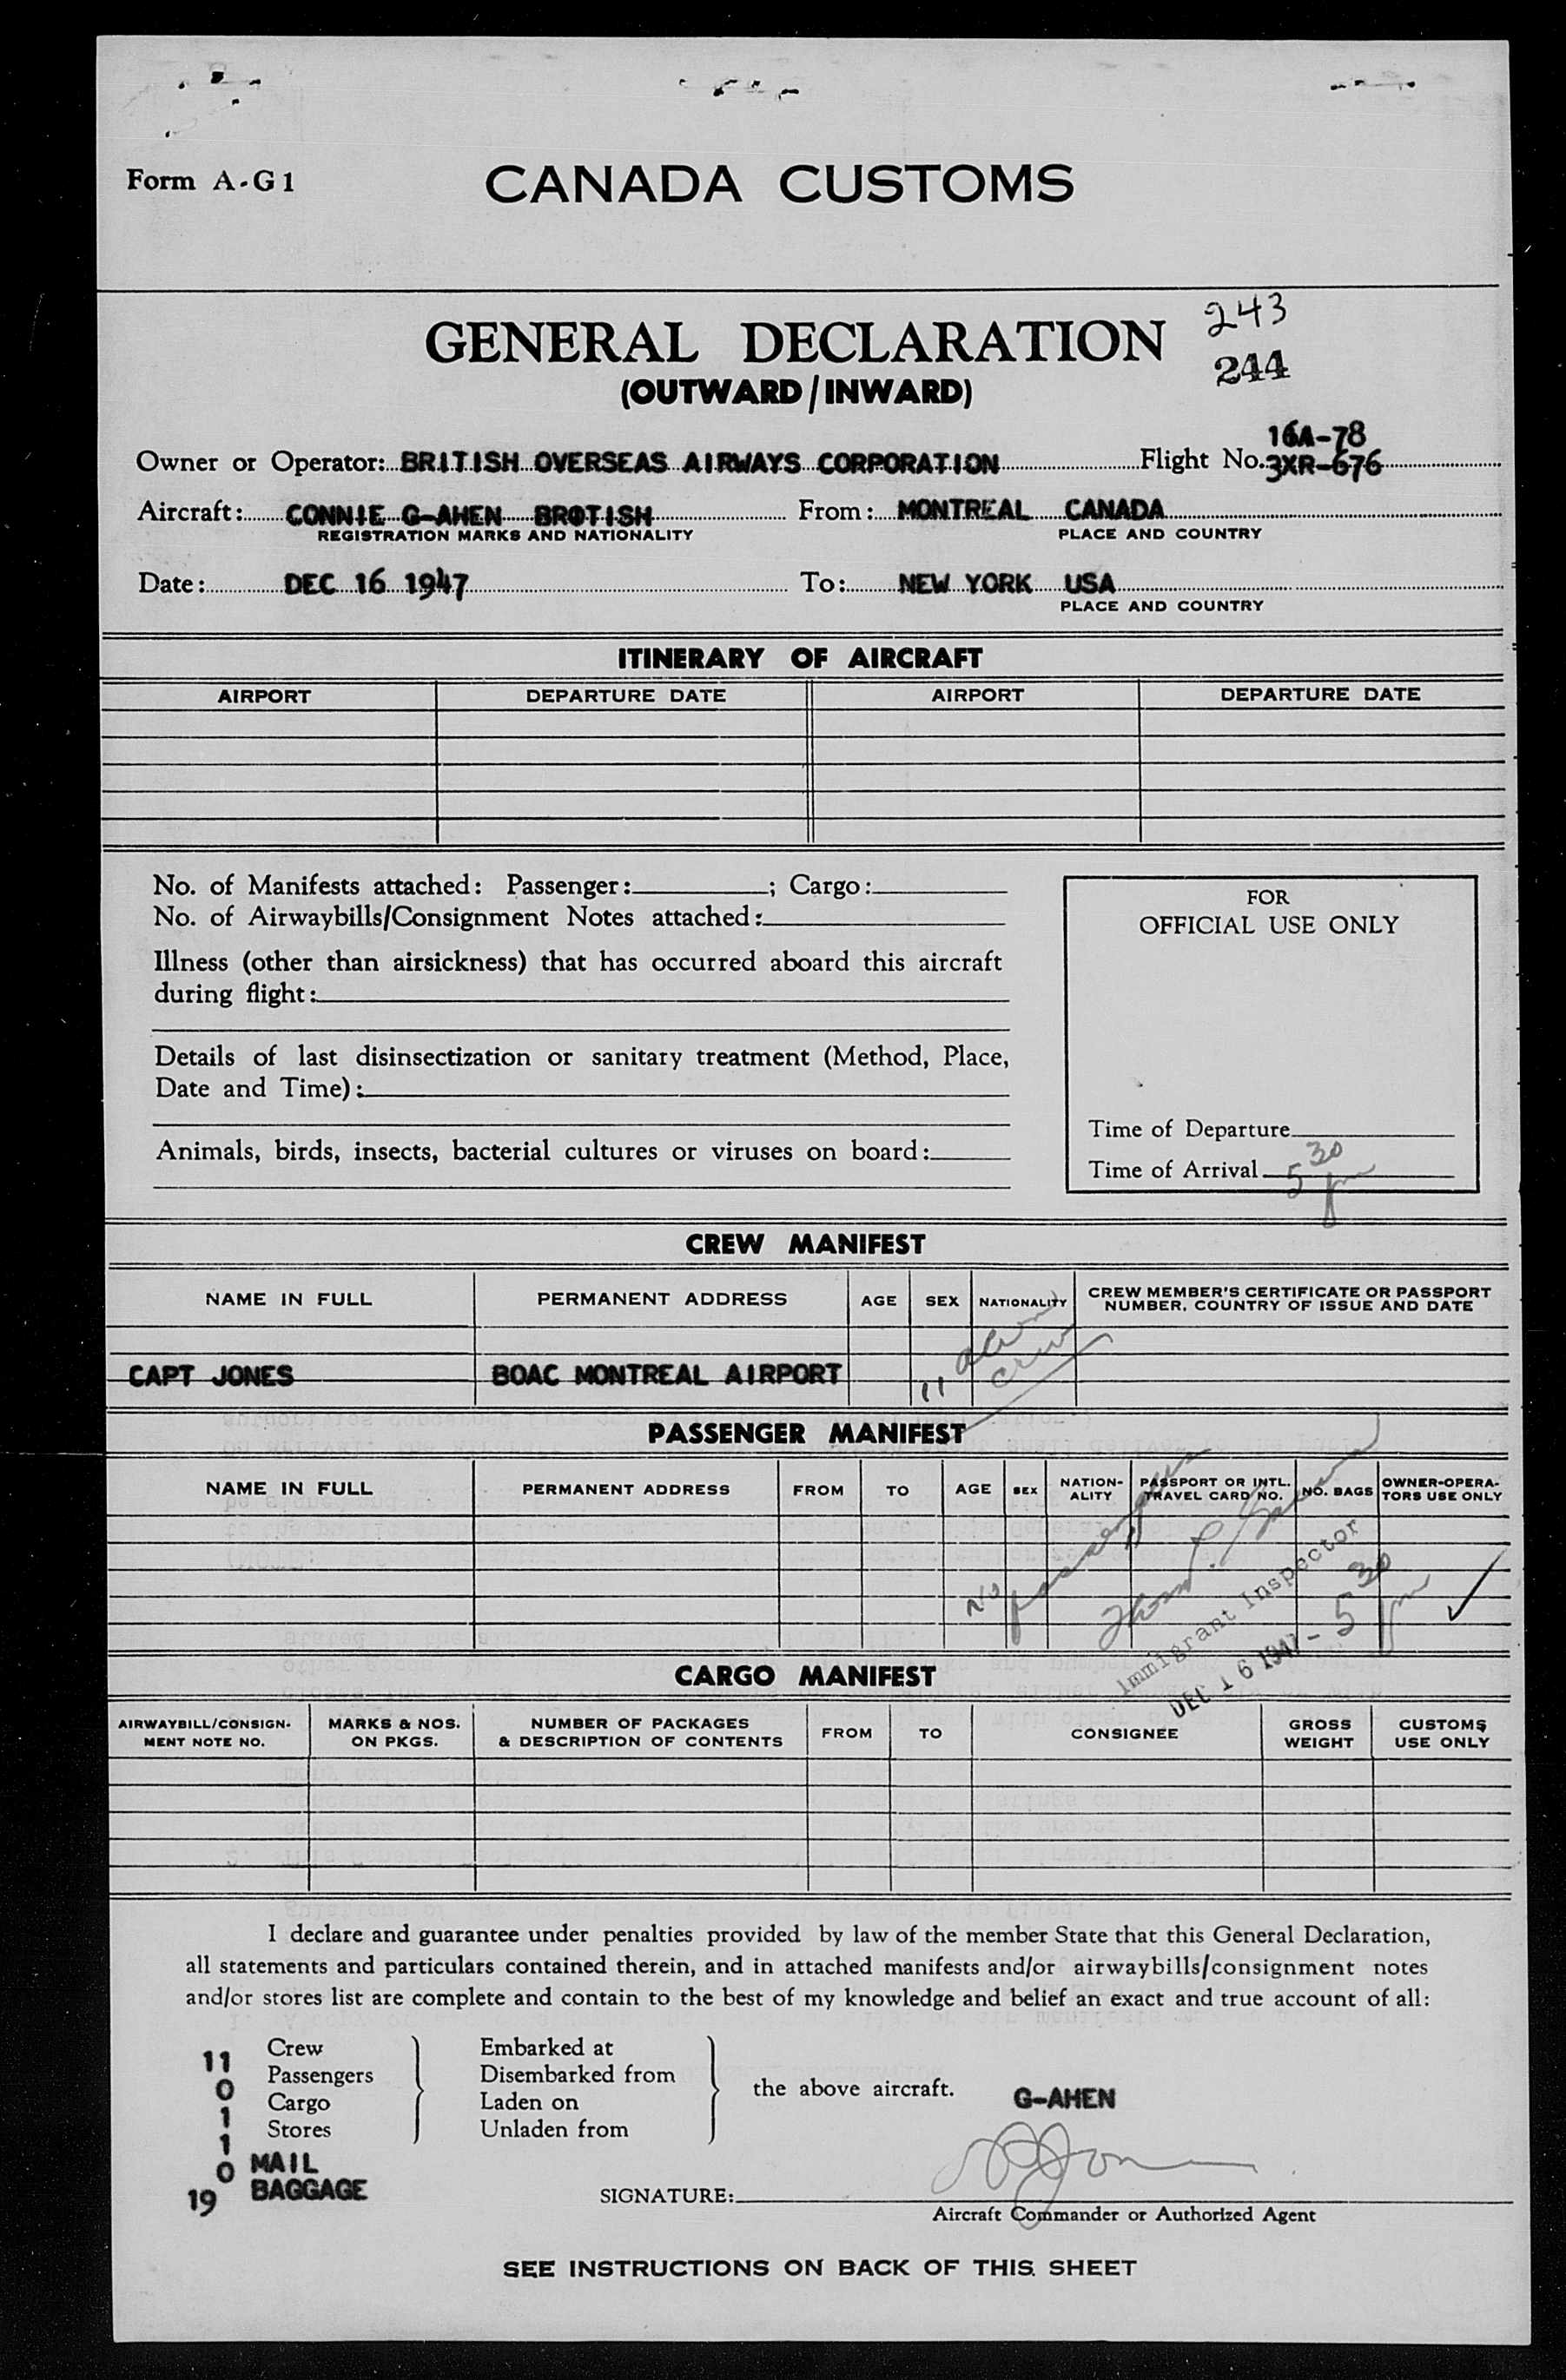 Form A-G1
CANADA CUSTOMS
243
GENERAL DECLARATION
244
(OUTWARD/INWARD)
16A-78
Owner or Operator: BRITISH OVERSEAS AIRWAYS CORPORATION Flight No. 3XR-676
Aircraft: CONNIE G-AHEN BROTISH From: MONTREAL CANADA
REGISTRATION MARKS AND NATIONALITY PLACE AND COUNTRY
Date: DEC 16 1947 To: NEW YORK USA
PLACE AND COUNTRY
ITINERARY OF AIRCRAFT
AIRPORT DEPARTURE DATE AIRPORT DEPARTURE DATE
No. of Manifests attached: Passenger: ; Cargo:
No. of Airwaybills/Consignment Notes attached:
Illness (other than airsickness) that has occurred aboard this aircraft
during flight:
Details of last disinsectization or sanitary treatment (Method, Place,
Date and Time):
Animals, birds, insects, bacterial cultures or viruses on board:
FOR
OFFICIAL USE ONLY
Time of Departure
Time of Arrival 5 30 pm
CREW MANIFEST
NAME IN FULL PERMANENT ADDRESS AGE SEX NATIONALITY CREW MEMBER'S CERTIFICATE OR PASSPORT
NUMBER, COUNTRY OF ISSUE AND DATE
CAPT JONES BOAC MONTREAL AIRPORT
11 alien
crew
PASSENGER MANIFEST
NAME IN FULL PERMANENT ADDRESS FROM TO AGE SEX NATION-
ALITY PASSPORT OR INTL.
TRAVEL CARD NO. NO. BAGS OWNER-OPERA-
TORS USE ONLY
No passengers
Immigrant Inspector
DEC 16 1947 - 5 30 pm
CARGO MANIFEST
AIRWAYBILL/CONSIGN-
MENT NOTE NO. MARKS & NOS.
ON PKGS. NUMBER OF PACKAGES
& DESCRIPTION OF CONTENTS FROM TO CONSIGNEE GROSS
WEIGHT CUSTOMS
USE ONLY
I declare and guarantee under penalties provided by law of the member State that this General Declaration,
all statements and particulars contained therein, and in attached manifests and/or airwaybills/consignment notes
and/or stores list are complete and contain to the best of my knowledge and belief an exact and true account of all:
11 Crew Embarked at
0 Passengers Disembarked from
the above aircraft. G-AHEN
1 Cargo Laden on
1 Stores Unladen from
0 MAIL
19 BAGGAGE
SIGNATURE: Jones
Aircraft Commander or Authorized Agent
SEE INSTRUCTIONS ON BACK OF THIS SHEET